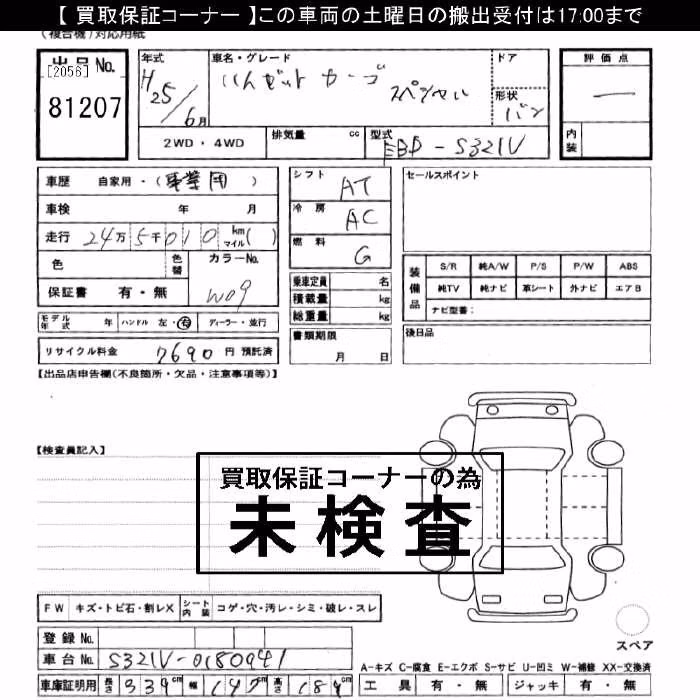 【 買取保証コーナー 】この車両の土曜日の搬出受付は17:00まで
(複合機)対応用紙
出品 No. [2056] 81207
年式 H25/6月
車名・グレード ハイゼット カーゴ スペシャル
ドア
形状 バン
評価点 一
内装
2WD・4WD
排気量 cc
型式 EBD-S321V
車歴 自家用・(事業用)
車検 年 月
走行 24万5千010 km マイル( )
色 色替
カラーNo. W09
保証書 有・無
シフト AT
冷房 AC
燃料 G
乗車定員 名
積載量 kg
総重量 kg
書類期限 月 日
セールスポイント
装備品
S/R 純A/W P/S P/W ABS
純TV 純ナビ 革シート 外ナビ エアB
ナビ型番:
後日品
モデル年式 年 ハンドル 左・右 ディーラー・並行
リサイクル料金 7690 円 預託済
【出品店申告欄(不良箇所・欠品・注意事項等)】
【検査員記入】
買取保証コーナーの為
未検査
FW キズ・トビ石・割レX シート内装 コゲ・穴・汚レ・シミ・破レ・スレ
登録 No.
車台 No. S321V-0180941
車庫証明用 長さ 339cm 幅 147cm 高さ 189cm
スペア
A-キズ C-腐食 E-エクボ S-サビ U-凹ミ W-補修 XX-交換済
工具 有・無 ジャッキ 有・無